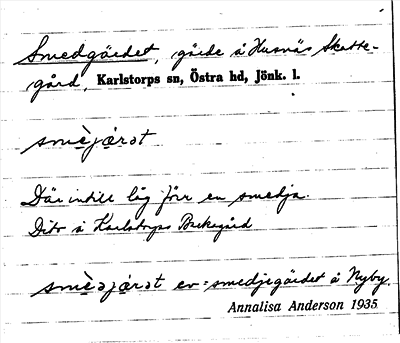 Smedgärdet, gärde å Husnäs Skatte-
gård, Karlstorps sn, Östra hd, Jönk. l.
smèjǽrət
Där intill låg förr en smedja.
Dito å Karlstorps Backegård
smèəjǽrət ev = smedjegärdet å Nyby.
Annalisa Anderson 1935